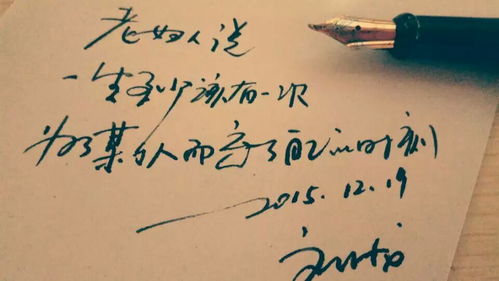 老妇人说
一生至少该有一次
为了某个人而忘了自己的时刻
——2015.12.19